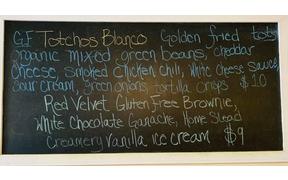 GF Totchos Blanco Golden fried tots,
organic mixed green beans, cheddar
cheese, smoked chicken chili, white cheese sauce,
sour cream, green onions tortilla crisps $10
Red Velvet Gluten Free Brownie,
White Chocolate Ganache, Home Stead
Creamery Vanilla ice cream $9